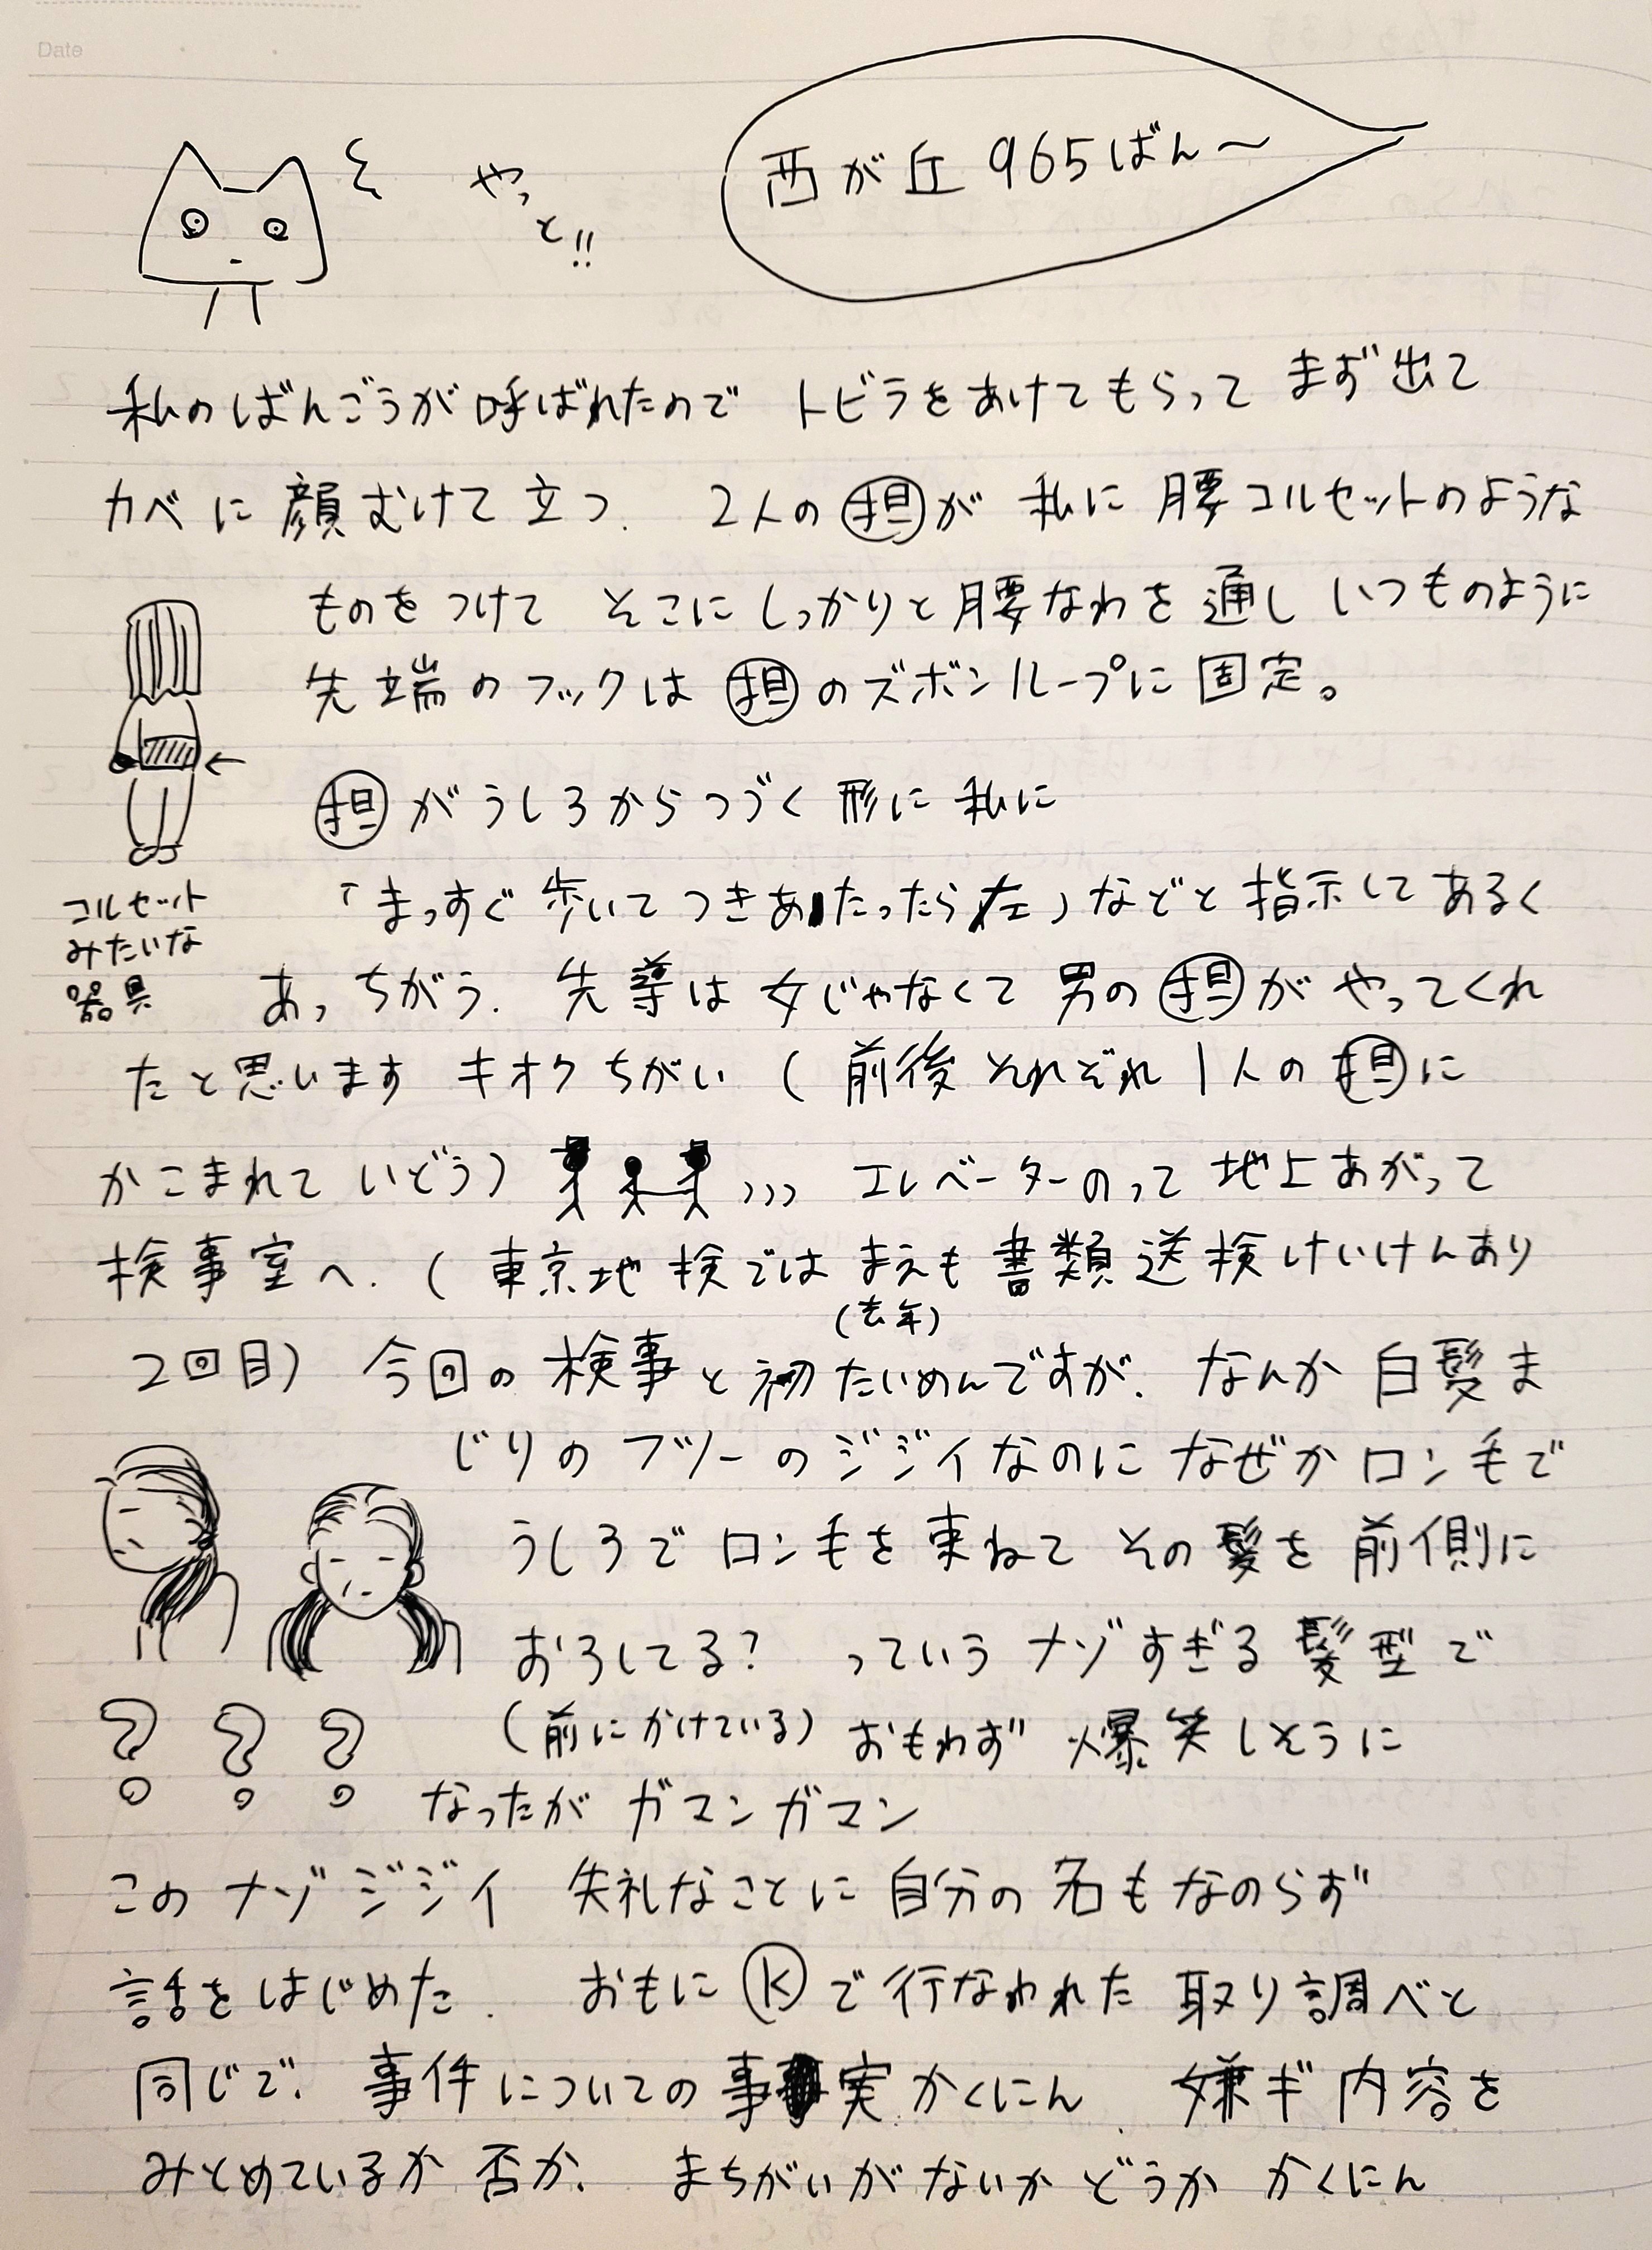 Date
やっと!!
西が丘 965ばん〜
私のばんごうが呼ばれたので トビラをあけてもらって まず出て
カベに 顔むけて 立つ. 2人の 担が 私に 腰コルセットのような
ものを つけて そこに しっかりと 腰なわを 通し いつものように
先端のフックは 担のズボンループに 固定。
担 がうしろからつづく 形に 私に
「まっすぐ 歩いて つきあたったら左」などと 指示して あるく
コルセット
みたいな
器具
あっ ちがう. 先導は 女じゃなくて 男の 担が やってくれ
たと思います キオクちがい ( 前後 それぞれ 1人の 担に
かこまれて いどう) エレベーターのって 地上あがって
検事室へ. ( 東京地検では まえも 書類送検けいけんあり
(去年)
2回目) 今回の 検事と 初たいめんですが. なんか 白髪ま
じりの フツーの ジジイなのに なぜか ロン毛で
うしろで ロン毛を 束ねて その 髪を 前側に
おろしてる? っていう ナゾすぎる 髪型で
(前にかけている) おもわず 爆笑しそうに
? ? ?
なったが ガマンガマン
このナゾジジイ 失礼なことに 自分の 名もなのらず
話をはじめた. おもに Ⓚで行なわれた 取り調べと
同じで. 事件についての 事実かくにん 嫌ギ内容を
みとめているか 否か. まちがいがないか どうか かくにん